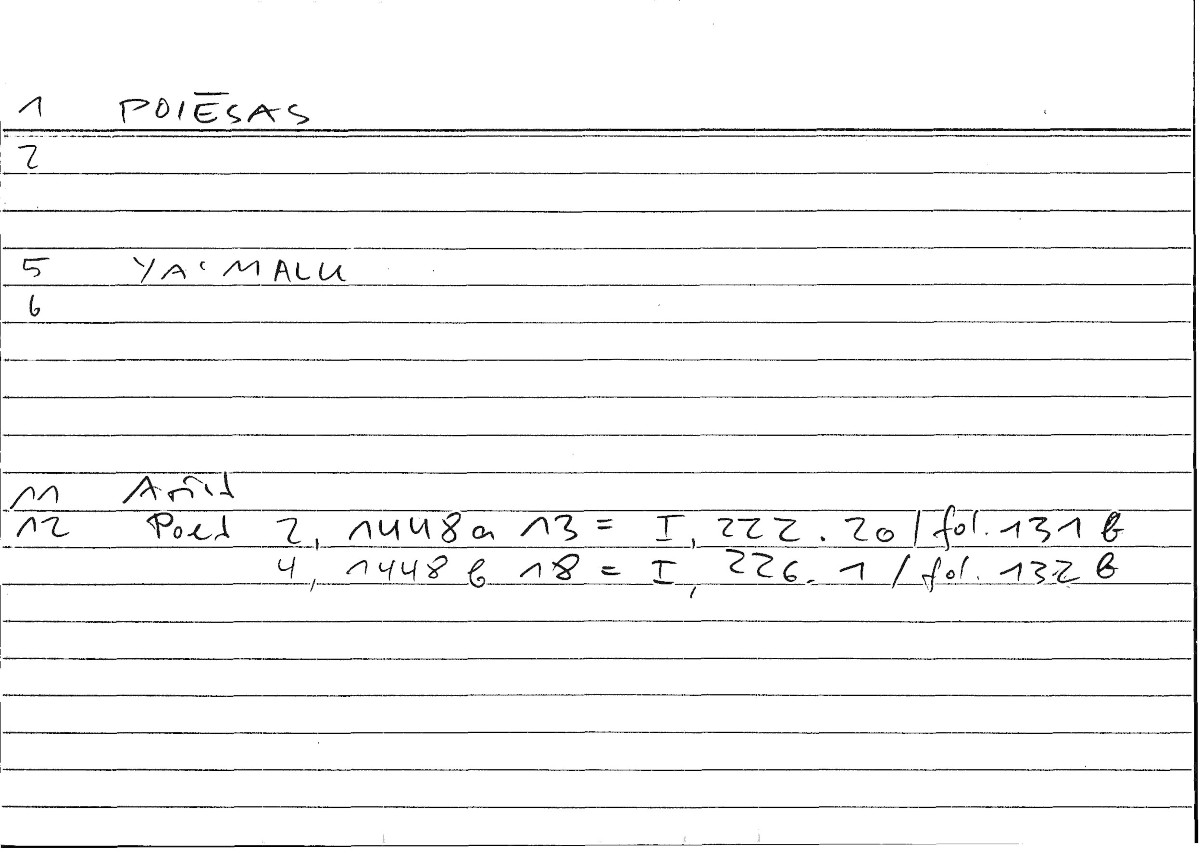 1 POIĒSAS
2
5 YAʿMALU
6
11 Arist
12 Poet 2, 1448a 13 = I, 222.20 / fol. 131 b
4, 1448 b 18 = I, 226.1 / fol. 132 b